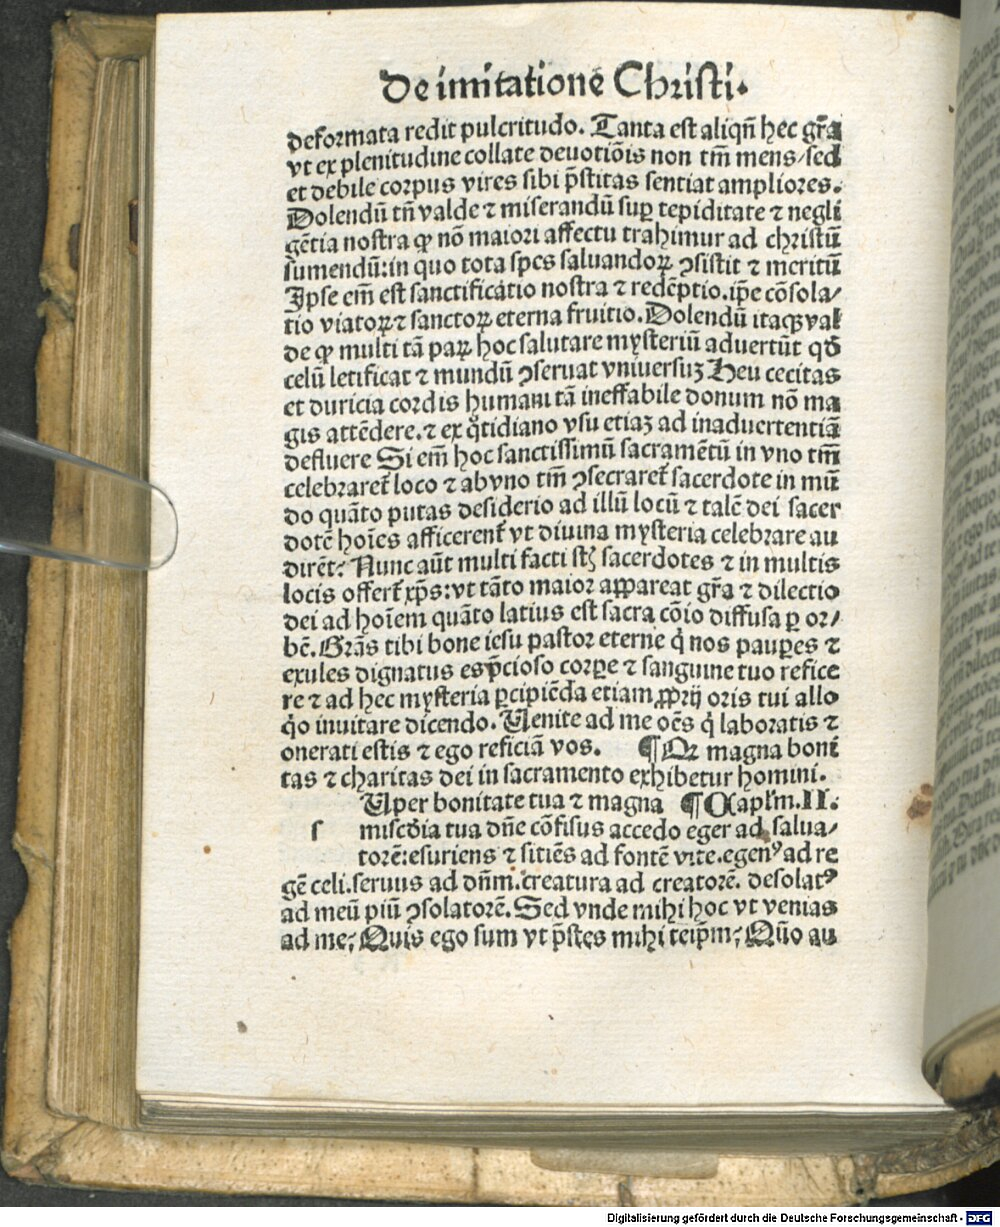 De imitatione Christi.
deformata redit pulcritudo. Tanta est aliqñ hec gr̃a
vt ex plenitudine collate deuotiõis non tm̃ mens/sed
et debile corpus vires sibi p̃stitas sentiat ampliores.
Dolendũ tñ valde ⁊ miserandũ suꝑ tepiditate ⁊ negli
gẽtia nostra ꝙ nõ maiori affectu trahimur ad christũ
sumendũ:in quo tota spes saluandoꝝ ꝯsistit ⁊ meritũ
Ipse em̃ est sanctificatio nostra ⁊ redẽptio.ip̃e cõsola/
tio viatoꝝ ⁊ sanctoꝝ eterna fruitio. Dolendũ itaqꝫ val
de ꝙ multi tã paꝝ hoc salutare mysteriũ aduertũt qđ
celũ letificat ⁊ mundũ ꝯseruat vniuersuꝫ Heu cecitas
et duricia cordis humani tã ineffabile donum nõ ma
gis attẽdere.⁊ ex q̊tidiano vsu etiaꝫ ad inaduertentiã
defluere Si em̃ hoc sanctissimũ sacramẽtũ in vno tm̃
celebraret̃ loco ⁊ ab vno tm̃ ꝯsecraret̃ sacerdote in mũ
do quãto putas desiderio ad illũ locũ ⁊ talẽ dei sacer
dotẽ hoĩes afficerent̃ vt diuina mysteria celebrare au
dirẽt: Nunc aũt multi facti st̃ sacerdotes ⁊ in multis
locis offert̃ xp̃s:vt tãto maior appareat gr̃a ⁊ dilectio
dei ad hoĩem quãto latius est sacra cõio diffusa ꝑ or/
bẽ. Gr̃as tibi bone iesu pastor eterne q̇ nos pauꝑes ⁊
exules dignatus es p̃cioso corpe ⁊ sanguine tuo refice
re ⁊ ad hec mysteria ꝑcipiẽda etiam ꝓprij oris tui allo
q̇o inuitare dicendo. Uenite ad me oẽs q̇ laboratis ⁊
onerati estis ⁊ ego reficiã vos. ¶Qꝙ magna boni
tas ⁊ charitas dei in sacramento exhibetur homini.
Uper bonitate tua ⁊ magna ¶Capĺm.II.
s miscđia tua dñe cõfisus accedo eger ad salua/
torẽ:esuriens ⁊ sitiẽs ad fontẽ vite.egenꝰ ad re
gẽ celi.seruus ad dñm.creatura ad creatorẽ. desolatꝰ
ad meũ piũ ꝯsolatorẽ. Sed vnde mihi hoc vt venias
ad me; Quis ego sum vt p̃stes mihi teip̃m; Quõ au
Digitalisierung gefördert durch die Deutsche Forschungsgemeinschaft - DFG